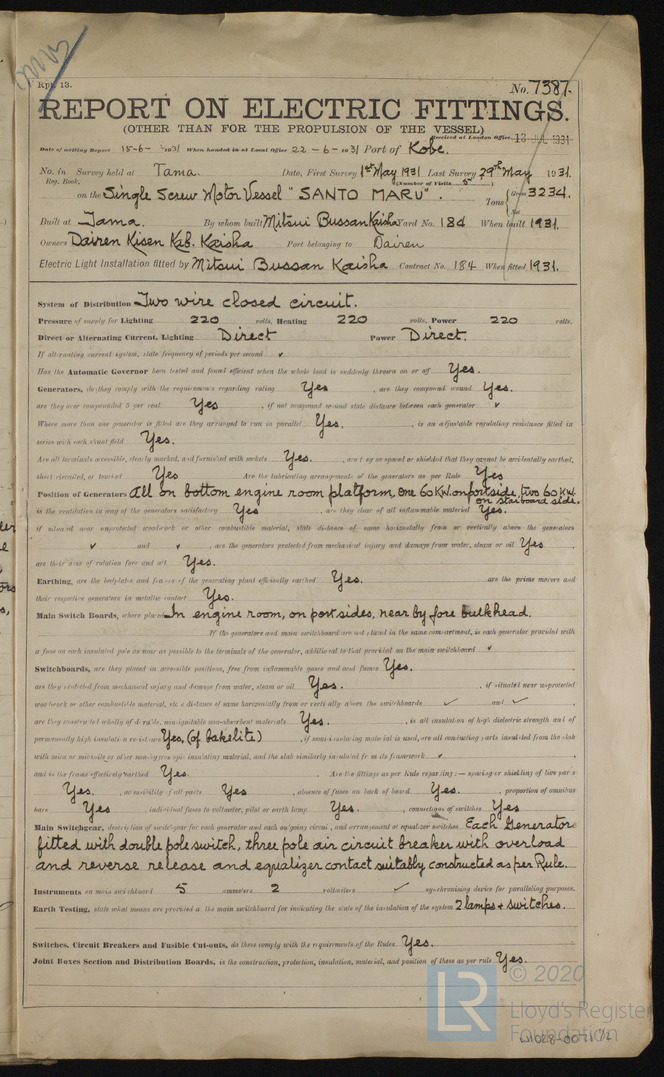 Rpt. 13.
No. 7387.
REPORT ON ELECTRIC FITTINGS.
(OTHER THAN FOR THE PROPULSION OF THE VESSEL)
Received at London Office 13 JUL 1931
Date of writing Report 15-6-1931 When handed in at Local Office 22-6-1931 Port of Kobe.
No. in Survey held at Tama. Date, First Survey 1st May 1931 Last Survey 29th May 1931.
Reg. Book. (Number of Visits 5)
on the Single Screw Motor Vessel "SANTO MARU". Tons { Gross 3234.
Net
Built at Tama. By whom built Mitsui Bussan Kaisha Yard No. 184 When built 1931.
Owners Dairen Kisen Kab. Kaisha Port belonging to Dairen
Electric Light Installation fitted by Mitsui Bussan Kaisha Contract No. 184 When fitted 1931.
System of Distribution Two wire closed circuit.
Pressure of supply for Lighting 220 volts, Heating 220 volts, Power 220 volts.
Direct or Alternating Current, Lighting Direct Power Direct.
If alternating current system, state frequency of periods per second ✓
Has the Automatic Governor been tested and found efficient when the whole load is suddenly thrown on or off Yes.
Generators, do they comply with the requirements regarding rating Yes, are they compound wound Yes.
are they over compounded 5 per cent. Yes, if not compound wound state distance between each generator ✓
Where more than one generator is fitted are they arranged to run in parallel Yes, is an adjustable regulating resistance fitted in
series with each shunt field Yes.
Are all terminals accessible, clearly marked, and furnished with sockets Yes., are they so spaced or shielded that they cannot be accidentally earthed,
short circuited, or touched Yes Are the lubricating arrangements of the generators as per Rule Yes
Position of Generators All on bottom engine room platform, One 60 KW. on port side, two 60 KW.
on starboard side.
is the ventilation in way of the generators satisfactory Yes, are they clear of all inflammable material Yes.
if situated near unprotected woodwork or other combustible material, state distance of same horizontally from or vertically above the generators
✓ and ✓, are the generators protected from mechanical injury and damage from water, steam or oil Yes
are their axes of rotation fore and aft Yes.
Earthing, are the bedplates and frames of the generating plant efficiently earthed Yes. are the prime movers and
their respective generators in metallic contact Yes.
Main Switch Boards, where placed In engine room, on port sides, near by fore bulkhead.
If the generators and main switchboard are not placed in the same compartment, is each generator provided with
a fuse on each insulated pole as near as possible to the terminals of the generator, additional to that provided on the main switchboard ✓
Switchboards, are they placed in accessible positions, free from inflammable gases and acid fumes Yes.
are they protected from mechanical injury and damage from water, steam or oil Yes., if situated near unprotected
woodwork or other combustible material, state distance of same horizontally from or vertically above the switchboards ✓ and ✓
are they constructed wholly of durable, non-ignitable non-absorbent materials Yes., is all insulation of high dielectric strength and of
permanently high insulation resistance Yes, (of bakelite), if semi-insulating material is used, are all conducting parts insulated from the slab
with mica or micanite or other non-hygroscopic insulating material, and the slab similarly insulated from its framework ✓
and is the frame effectively earthed Yes. Are the fittings as per Rule regarding:— spacing or shielding of live parts
Yes., accessibility of all parts Yes, absence of fuses on back of board Yes., proportion of omnibus
bars Yes, individual fuses to voltmeter, pilot or earth lamp Yes., connections of switches Yes
Main Switchgear, description of switchgear for each generator and each outgoing circuit, and arrangement of equalizer switches Each Generator
fitted with double pole switch, three pole air circuit breaker with overload
and reverse release and equalizer contact suitably constructed as per Rule.
Instruments on main switchboard 5 ammeters 2 voltmeters ✓ synchronising device for paralleling purposes.
Earth Testing, state what means are provided at the main switchboard for indicating the state of the insulation of the system 2 lamps & switches.
Switches, Circuit Breakers and Fusible Cut-outs, do these comply with the requirements of the Rules Yes.
Joint Boxes Section and Distribution Boards, is the construction, protection, insulation, material, and position of these as per rule Yes.
© 2020
LR
Lloyd's Register
Foundation
W1028-0071 1/2